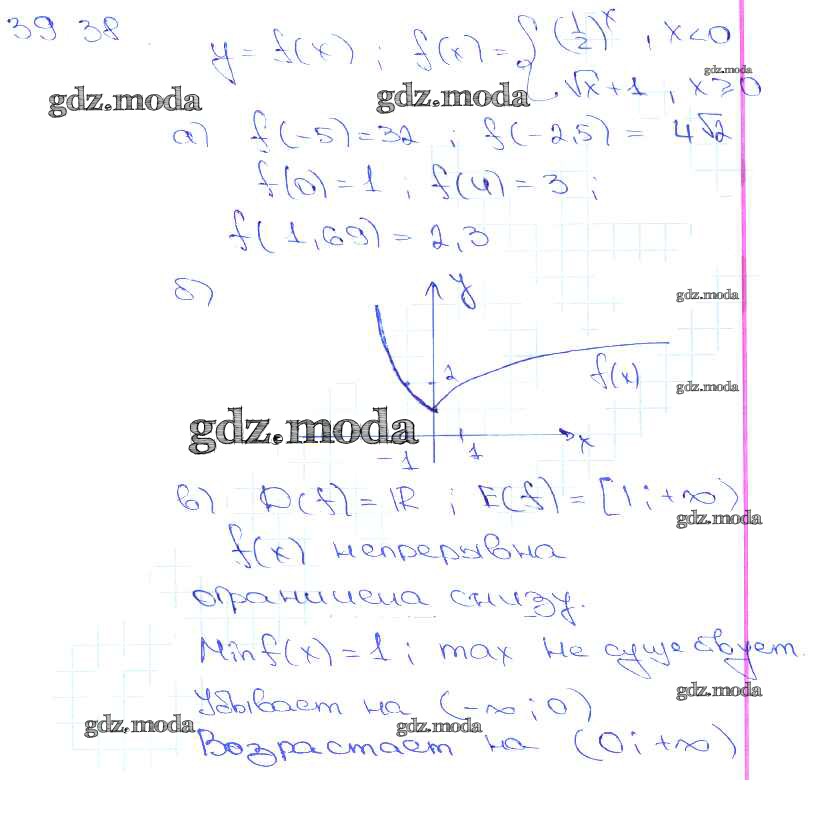 39 38
y = f(x) ; f(x) = { (1/2)^x , x<0
√x + 1 , x ⩾ 0
gdz.moda
gdz.moda gdz.moda
а) f(-5) = 32 ; f(-2,5) = 4√2
f(0) = 1 ; f(4) = 3 ;
f(1,69) = 2,3
б)
y
gdz.moda
2
f(x)
gdz.moda
gdz.moda
x
-1 1
в) D(f) = R ; E(f) = [1; +∞)
gdz.moda
f(x) непрерывна
ограничена снизу.
Min f(x) = 1 ; max не существует.
gdz.moda
Убывает на (-∞ ; 0)
gdz.moda gdz.moda
Возрастает на (0; +∞)